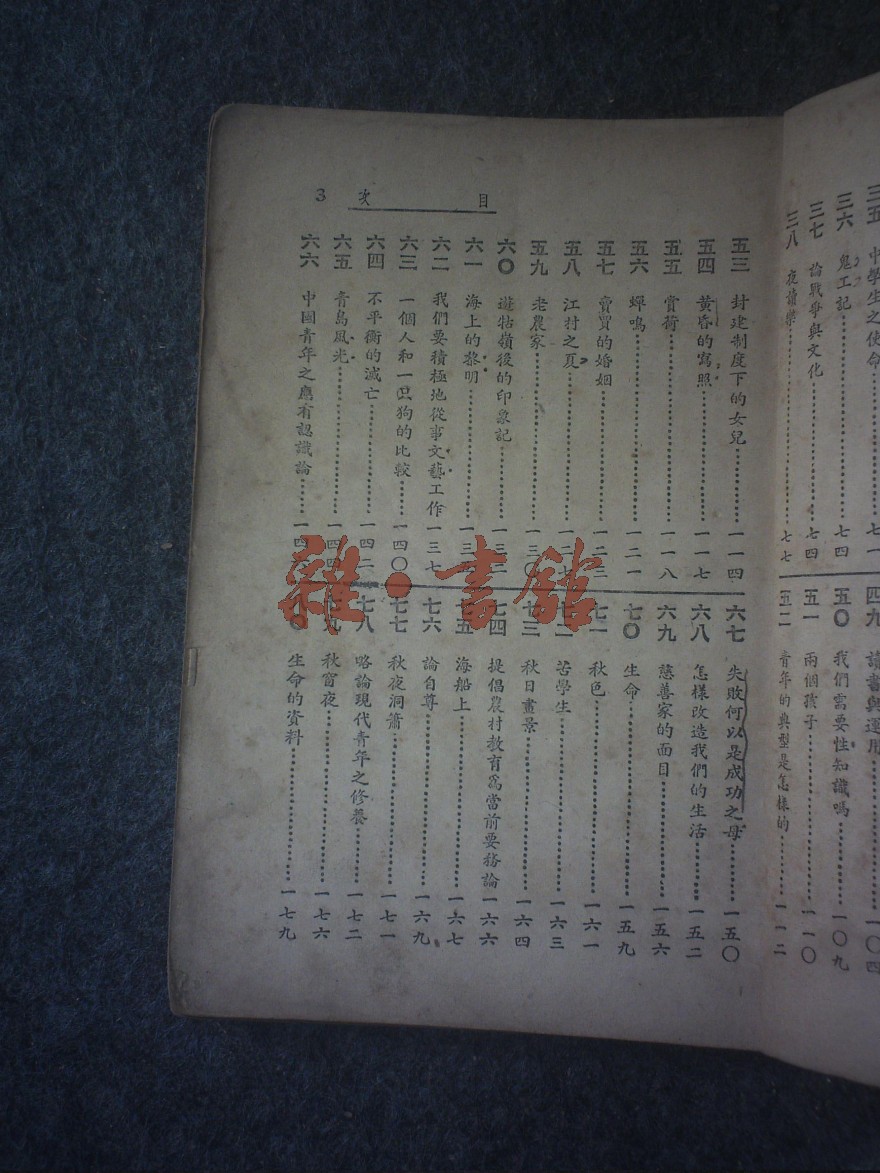 三五 中學生之使命………七一
三六 鬼工記………七四
三七 論戰爭與文化………七四
三八 夜讀樂………七七
四九 讀書與運用………一〇四
五〇 我們需要性知識嗎………一〇九
五一 兩個孩子………一一〇
五二 青年的典型是怎樣的………一一二
目 次 3
五三 封建制度下的女兒………一一四
五四 黃昏的寫照………一一七
五五 賞荷………一一八
五六 蟬鳴………一二一
五七 賣買的婚姻………一二二
五八 江村之夏………一二七
五九 老農家………一三〇
六〇 遊牯嶺後的印象記………
六一 海上的黎明………
六二 我們要積極地從事文藝工作………一三七
六三 一個人和一只狗的比較………一四〇
六四 不平衡的滅亡………一四二
六五 青島風光………一四四
六六 中國青年之應有認識論………
六七 失敗何以是成功之母………一五〇
六八 怎樣改造我們的生活………一五二
六九 慈善家的面目………一五六
七〇 生命………一五九
七一 秋色………一六一
七二 苦學生………一六三
七三 秋日畫景………一六四
七四 提倡農村教育爲當前要務論………一六六
七五 海船上………一六七
七六 論自尊………一六九
七七 秋夜洞簫………一七一
七八 略論現代青年之修養………一七二
七九 秋窗夜………一七六
八〇 生命的資料………一七九
雜·書館